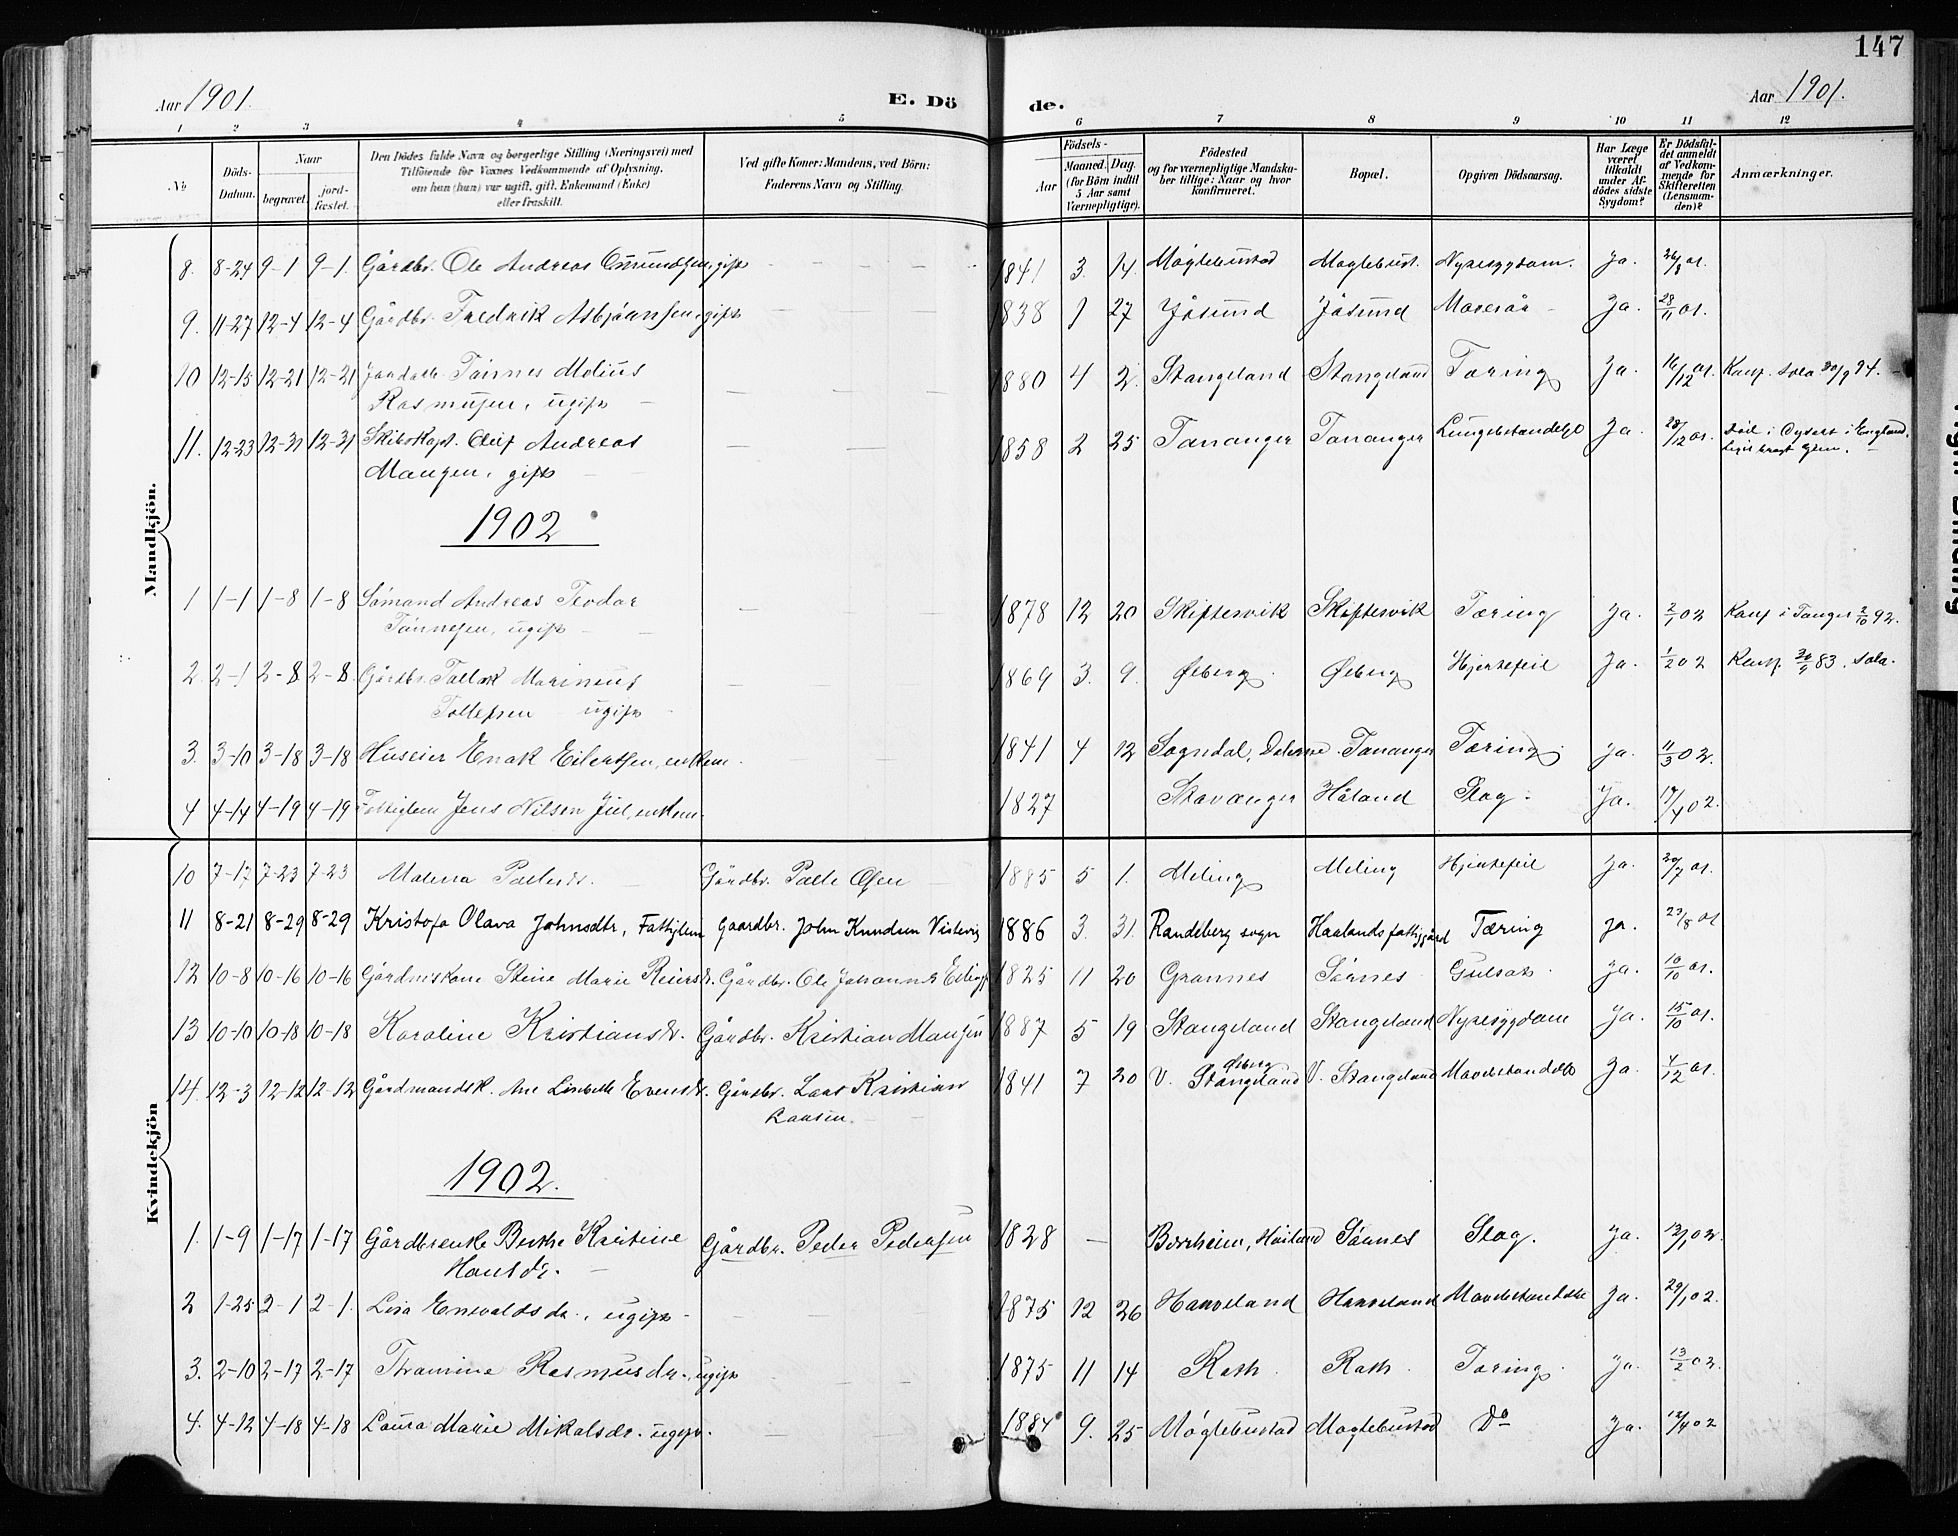 147
Aar 1901.
E. Dö
de.
Aar 1901.
1 2 3 4 5 6 7 8 9 10 11 12
No
Döds-Datum.
Naar
begravet.
jord-fæstet.
Den Dödes fulde Navn og borgerlige Stilling (Næringsvei) med
Tilföiende for Voxnes Vedkommende af Oplysning,
om han (hun) var ugift, gift, Enkemand (Enke)
eller fraskilt.
Ved gifte Koner: Mandens, ved Börn:
Faderens Navn og Stilling.
Födsels-
Aar
Maaned. Dag.
(for Börn indtil
5 Aar samt
Værnepligtige).
Födested
og for værnepligtige Mandska-
ber tillige: Naar og hvor
konfirmeret.
Bopæl.
Opgiven Dödsaarsag.
Har Læge
været
tilkaldt
under Af-
dödes sidste
Sygdom?
Er Dödsfal-
det anmeldt
af Vedkom-
mende for
Skifteretten
(Lensman-
den)?
Anmærkninger.
Mandkjön.
8. 8-24 9-1 9-1. Gårdbr. Ole Andreas gift 1841 3. 14 Møglebustad Møglebust. Nyresygdom. Ja. 26/8 01.
9. 11-27 12-4 12-4 Gårdbr. Fredrik Asbjørnsen, gift 1838 1 27 Jåsund Jåsund Mavesår Ja. 28/11 01.
10 12-15 12-21 12-21 Tønnes Molius 1880 4 2. Stangeland Stangeland Tæring Ja. 16/12 01. Konf. Sola 30/9 94.
Rasmusen, ugift
11. 12-23 12-31 12-31 Skibskapt. Oluf Andreas 1858 2 25 Tananger Tananger Lungebetændelse Ja. 28/12 01. Død i Cysert i England.
Monsen, gift
Liget bragt hjem.
1902
1 1-1 1-8 1-8 Sømand Andreas Teodor 1878 12 20 Skiftesvik Skiftesvik Tæring Ja. 2/1 02 Konf i Tanger 2/10 92.
Tønnesen, ugift
2. 2-1 2-8 2-8 Gårdbr. Tallak Marinius 1869 3. 9. Øxberg. Øxberg Hjertefeil Ja. 1/2 02 Konf. 30/9 83. Sola.
Tollefsen ugift
3. 3-10 3-18 3-18 Huseier Enok Eilertsen, enkem. 1841 4 12 Sogndal, Dalerne Tananger Tæring. Ja. 11/3 02.
4 4-14 4-19 4-19 Fattiglem Jens Nilsen Jül, enkem. 1827 Stavanger Håland Slag. Ja. 17/4 02.
Kvindekjön
10 7-17 7-23 7-23 Malena Pallesdr. Gårdbr. Palle Olsen 1885 5 1. Meling Meling Hjertefeil Ja. 20/7 01.
11 8-21 8-29 8-29 Kristofa Olava Johnsdtr, Fattiglem Gaardbr. John Knudsen Vistevig 1886 3. 31. Randeberg sogn Haalands fattiggård Tæring Ja. 23/8 01
12 10-8 10-16 10-16 Gårdmskone Steine Marie Reiersdr. Gårdbr. Ole Johannes 1825 11 20 Grannes Sømnes Gulsot. Ja. 10/10 01.
13 10-10 10-18 10-18 Karoline Kristiansdr. Gårdbr. Kristian Monsen 1887 5 19 Stangeland Stangeland Nyresygdom Ja. 15/10 01.
14. 12-3 12-12 12-12 Gårdmandsk. Ane Lisbette Evensdr. Gårdbr. Lars Kristian 1841 7 20 V. Stangeland V. Stangeland Mavebetændelse Ja. 4/12 01.
Øxberg
Larsen.
1902.
1. 1-9 1-17 1-17 Gårdbrenke Berthe Kristine Gårdbr. Peder Pedersen 1828 — Borrheim, Høiland Sømnes Slag. Ja. 12/1 02.
Hansdr.
2 1-25 2-1 2-1. Lisa Enevaldsdr., ugift 1875 12 26 Haaveland Haaveland Mavebetændelse Ja. 29/1 02.
3. 2-10 2-17 2-17 Thomine Rasmusdr., ugift 1875 11 14 Roth Roth Tæring. Ja. 13/2 02.
4. 4-12 4-18 4-18 Laura Marie Mikalsdr. ugift. 1884 9. 25 Møglebustad Møglebustad Do Ja. 12/4 02